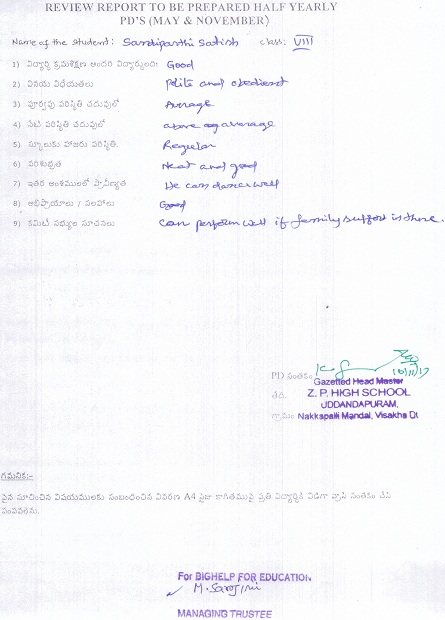 REVIEW REPORT TO BE PREPARED HALF YEARLY
PD'S (MAY & NOVEMBER)
Name of the student: Sandiparthi Satish class: VIII
1) విద్యార్థి క్రమశిక్షణ అందరి విద్యార్థులందు: Good
2) వినయ విధేయతలు Polite and obedient
3) పూర్వపు పరిస్థితి చదువులో Average
4) నేటి పరిస్థితి చదువులో above average
5) స్కూలుకు హాజరు పరిస్థితి. Regular
6) పరిశుభ్రత Neat and good
7) ఇతర అంశములలో ప్రావీణ్యత He can dance well
8) అభిప్రాయాలు / సలహాలు Good
9) కమిటీ సభ్యుల సూచనలు can perform well if family support is there.
PD సంతకం
16/11/17
Gazetted Head Master
తేది. Z. P. HIGH SCHOOL
UDDANDAPURAM,
గ్రామం: Nakkapalli Mandal, Visakha Dt
గమనిక:-
పైన సూచించిన విషయములకు సంబంధించిన వివరణ A4 సైజు కాగితముపై ప్రతి విద్యార్థికి విడిగా వ్రాసి సంతకం చేసి
పంపవలెను.
For BIGHELP FOR EDUCATION
M. Sarojini
MANAGING TRUSTEE